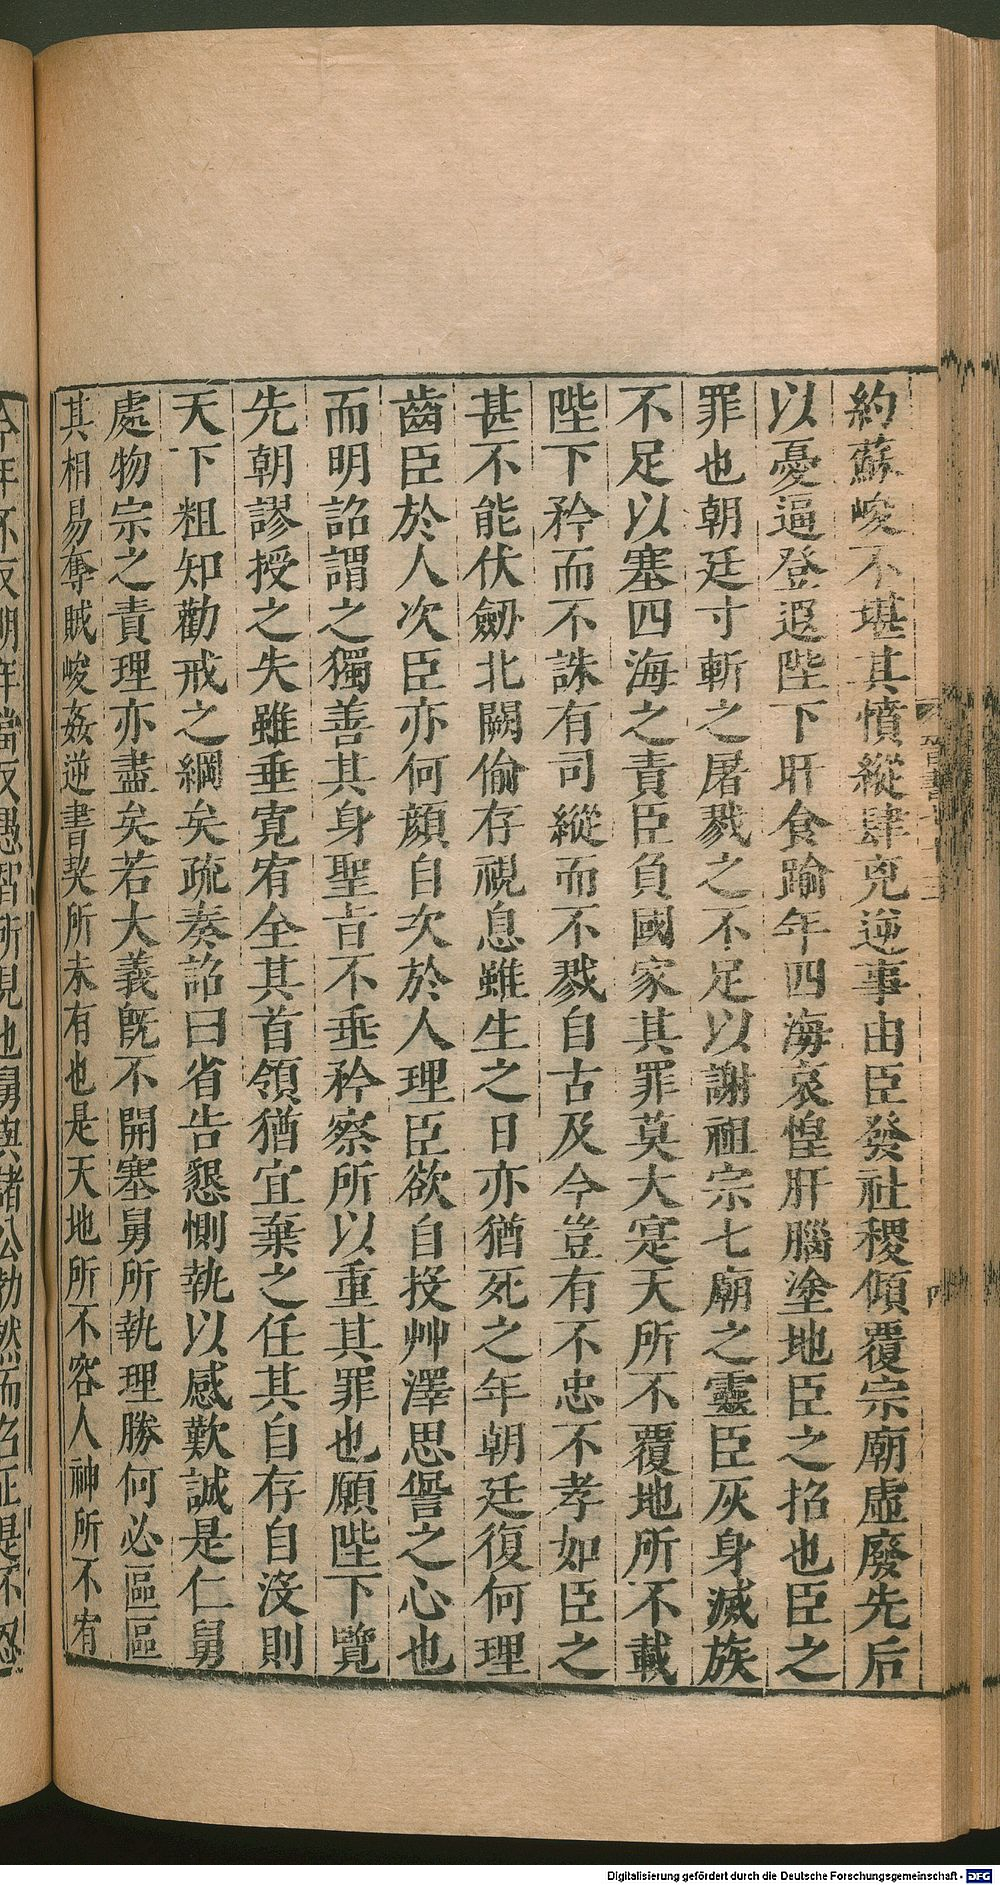 約蘇峻不堪其憤縱肆兇逆事由臣發社稷傾覆宗廟虛廢先后
以憂逼登遐陛下旰食踰年四海哀惶肝腦塗地臣之招也臣之
罪也朝廷寸斬之屠戮之不足以謝祖宗七廟之靈臣灰身滅族
不足以塞四海之責臣負國家其罪莫大寔天所不覆地所不載
陛下矜而不誅有司縱而不戮自古及今豈有不忠不孝如臣之
甚不能伏劒北闕偷存視息雖生之日亦猶死之年朝廷復何理
齒臣於人次臣亦何顏自次於人理臣欲自投艸澤思愆之心也
而明詔謂之獨善其身聖旨不垂矜察所以重其罪也願陛下覽
先朝謬授之失雖垂寬宥全其首領猶宜棄之任其自存自沒則
天下粗知勸戒之綱矣疏奏詔曰省告懇惻執以感歎誠是仁舅
處物宗之責理亦盡矣若大義旣不開塞舅所執理勝何必區區
其相易奪賊峻姦逆書契所未有也是天地所不容人神所不宥
今年不反明年當反愚智所見也舅與諸公勃然而召正是不忍
Digitalisierung gefördert durch die Deutsche Forschungsgemeinschaft - DFG